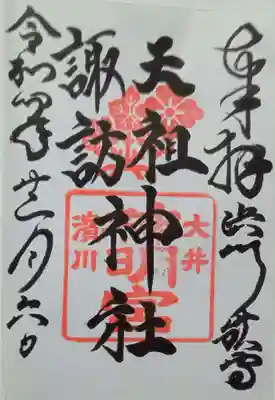 奉拝
天祖
諏訪神社
令和四年十二月六日
大井
神明宮
濱川